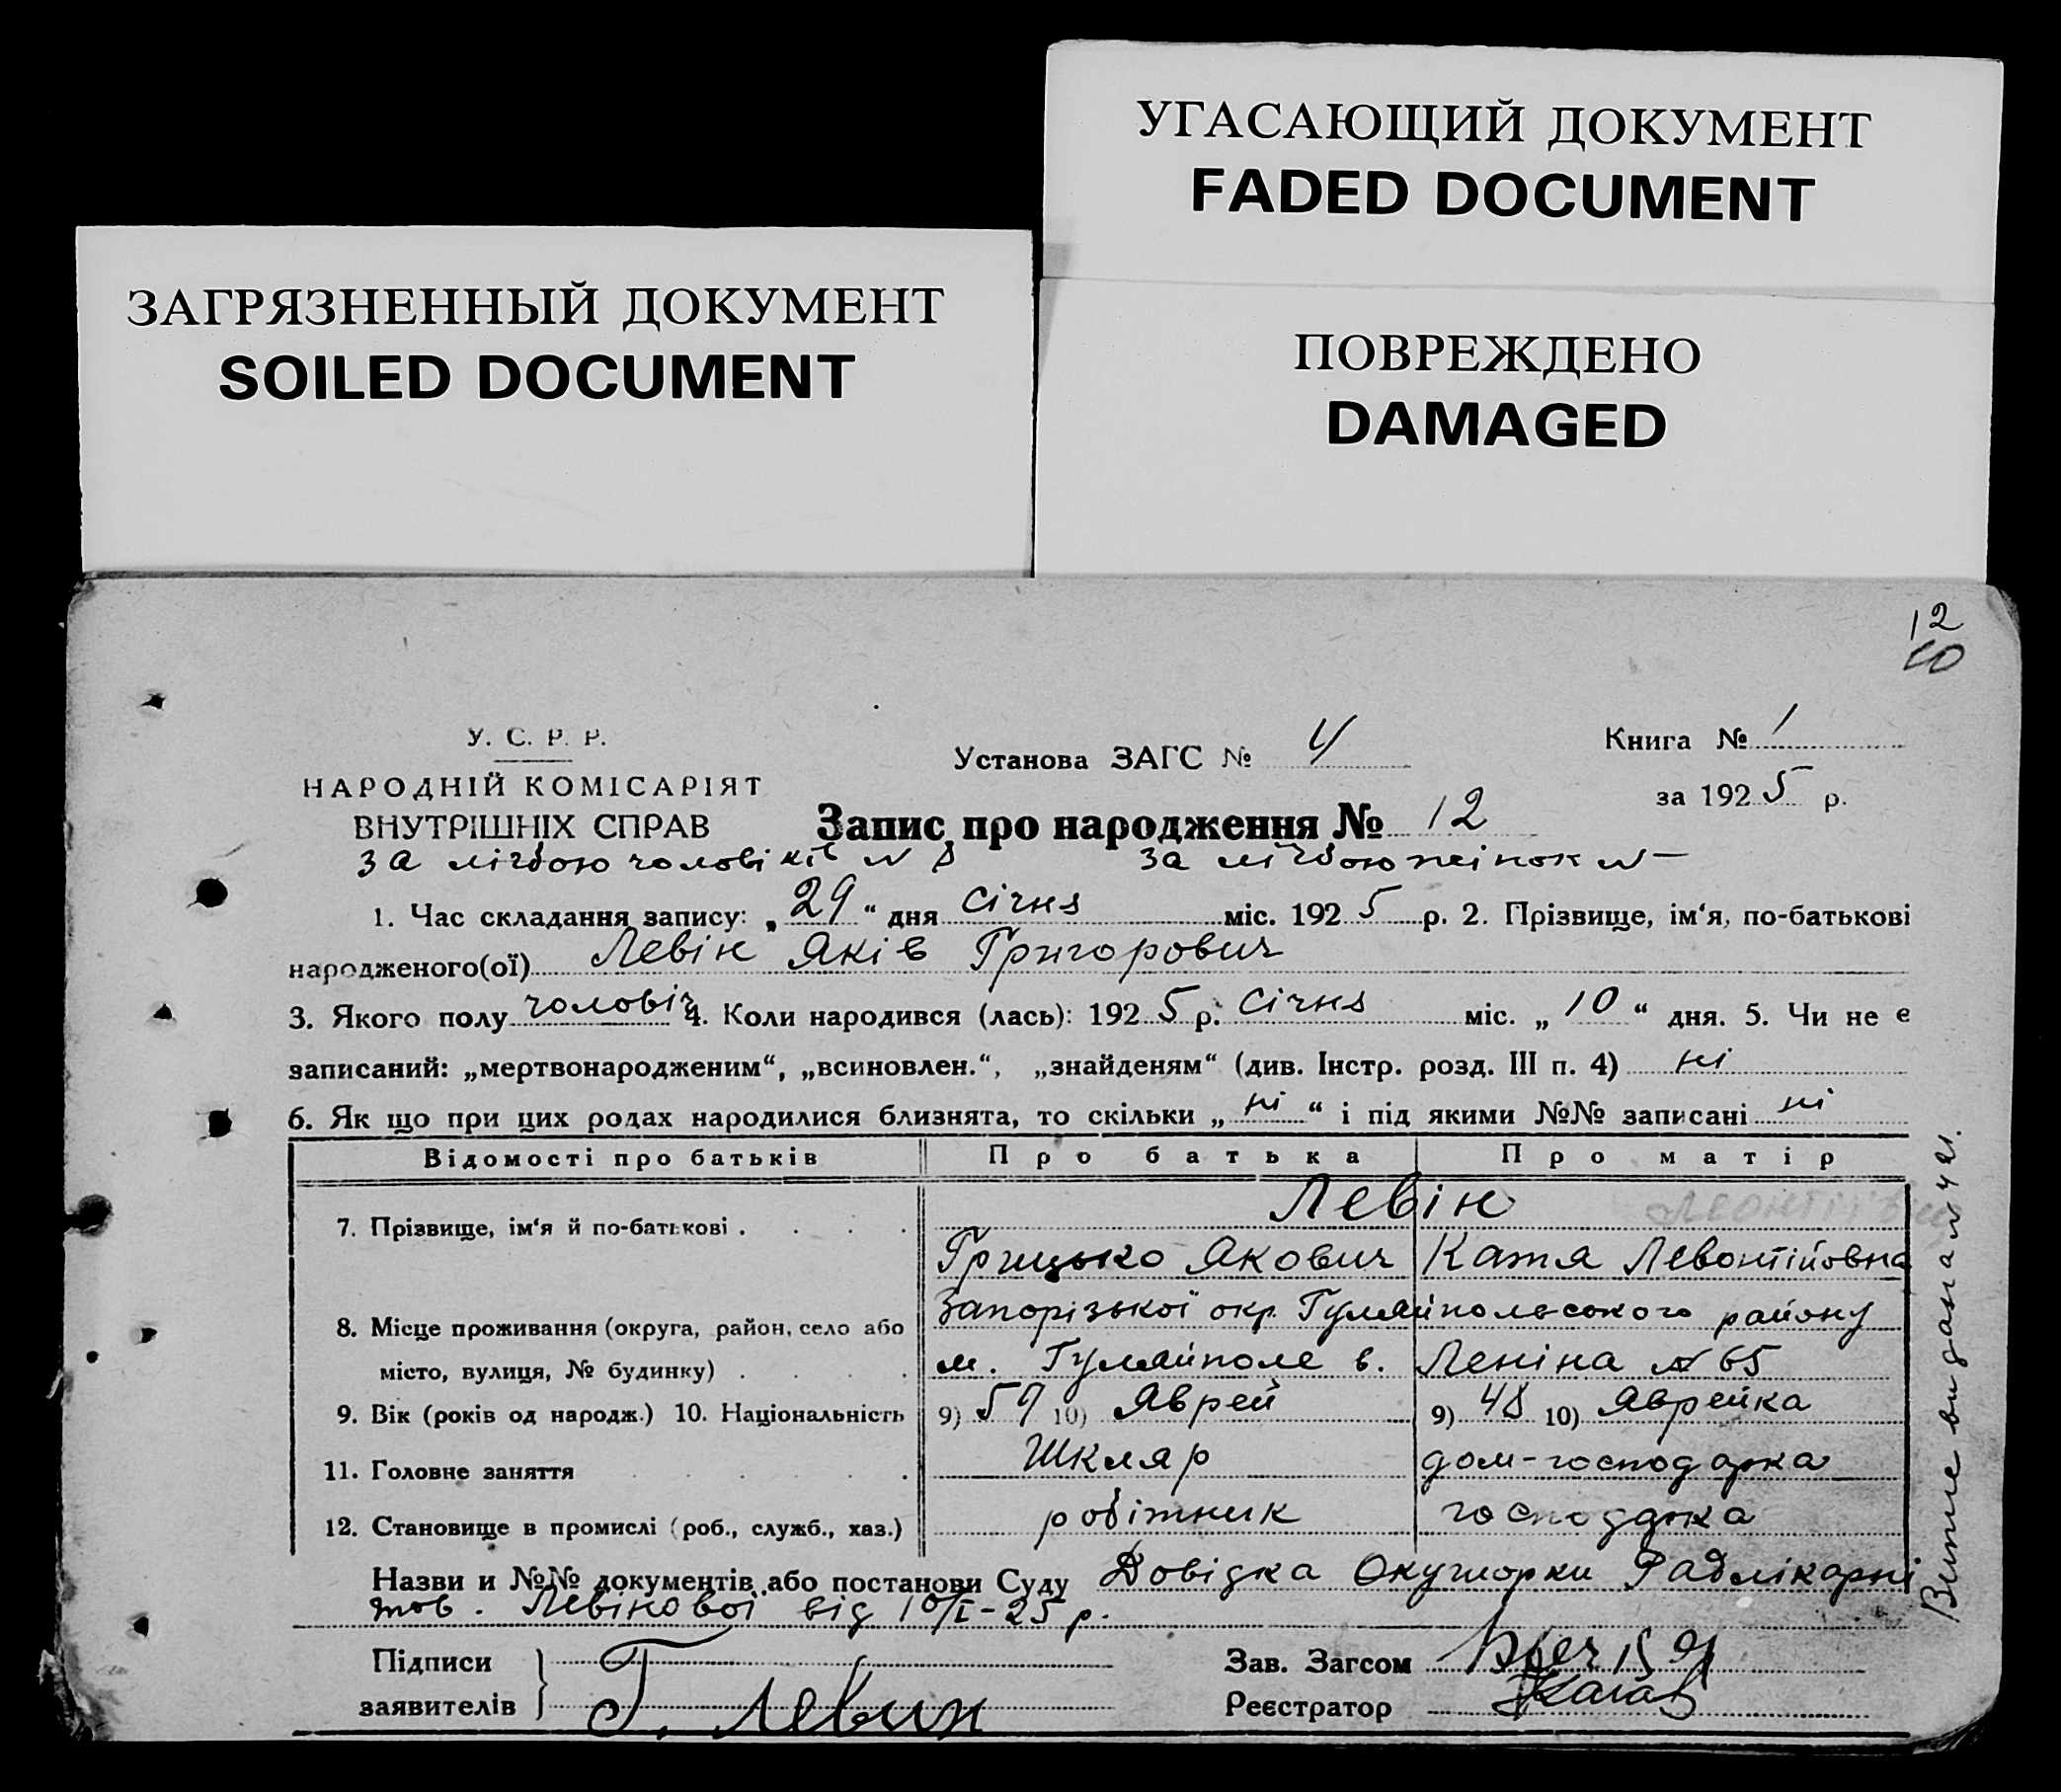 УГАСАЮЩИЙ ДОКУМЕНТ
FADED DOCUMENT
ЗАГРЯЗНЕННЫЙ ДОКУМЕНТ
SOILED DOCUMENT
ПОВРЕЖДЕНО
DAMAGED
12
У. С. Р. Р.
НАРОДНІЙ КОМІСАРІЯТ
ВНУТРІШНІХ СПРАВ
Установа ЗАГС № 4
Книга № 1
за 1925 р.
Запис про народження № 12
за лічбою чоловіків № 8 за лічбою жінок № —
1. Час складання запису: „29“ дня січня міс. 1925 р. 2. Прізвище, ім‘я, по-батькові
народженого(ої) Левін Яків Григорович
3. Якого полу чоловіч 4. Коли народився (лась): 1925 р. Січня міс. „10“ дня. 5. Чи не є
записаний: „мертвонародженим“, „всиновлен.“, „знайденям“ (див. Інстр. розд. III п. 4) ні
6. Як що при цих родах народилися близнята, то скільки „ні“ і під якими №№ записані ні
Відомості про батьків Про батька Про матір
Левін
7. Прізвище, ім‘я й по-батькові . . . .
Грицько Якович Катя Левонтійовна
Запорізької окр. Гуляйпольського району
8. Місце проживання (округа, район, село або
місто, вулиця, № будинку) . . . . м. Гуляйполе в. Леніна № 65
9. Вік (років од народж.) 10. Національність 9) 57 10) Яврей 9) 48 10) Яврейка
11. Головне заняття Шкляр дом-господарка
12. Становище в промислі (роб., служб., хаз.) робітник господарка
Назви и №№ документів або постанови Суду Довідка Окушорки Радлікарні
тов. Левінової від 10/I-25 р.
Підписи
заявителів Г. Левин
Зав. Загсом
Реєстратор